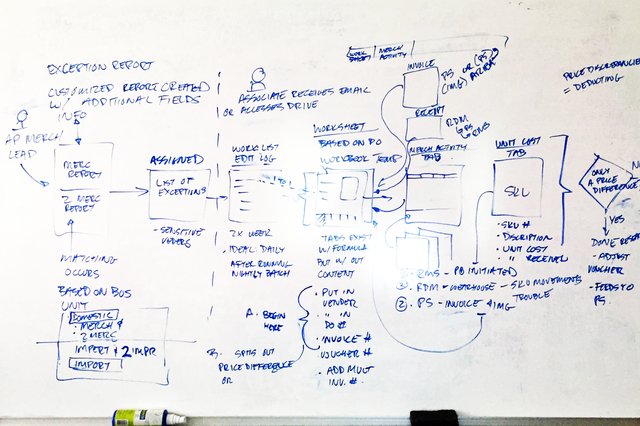 EXCEPTION REPORT
CUSTOMIZED REPORT CREATED
W/ ADDITIONAL FIELDS
INFO
AP MERCH
LEAD
MERC
REPORT
2 MERC
REPORT
ASSIGNED
LIST OF
EXCEPTIONS
- SENSITIVE
MATCHING
OCCURS
BASED ON BUS
UNIT
DOMESTIC
MERCH &
2 MERC
IMPORT
ASSOCIATE RECEIVES EMAIL
OR ACCESSES DRIVE
WORK LIST
EDIT LOG
2X WEEK
IDEAL: DAILY
AFTER RUNNING
NIGHTLY BATCH
WORKSHEET
BASED ON PO
WORKBOOK TEMP
TABS EXIST
W/ FORMULA
BUT W/ OUT
CONTENT
A. BEGIN
HERE
PUT IN
VENDER
" IN
INVOICE #
VOUCHER #
ADD MULT
INV. #
B. SPITS OUT
PRICE DIFFERENCE
OR
WORK
SHEET
MERCH
ACTIVITY
INVOICE
PS OR (PS)
(IMG)
RECEIPT
RDM
MERCH ACTIVITY
TAB
RMS - PO INITIATED
RDM - WAREHOUSE - SKU MOVEMENTS
TROUBLE
2. PS - INVOICE & IMG
UNIT COST
TAB
SKU
- SKU #
- DISCRIPTION
- UNIT COST
- " RECEIVED
PRICE DISCREPANCIES
= DEDUCTING
ONLY
A PRICE
DIFFERENCE
YES
- ADJUST
VOUCHER
- FEEDS TO
PS.